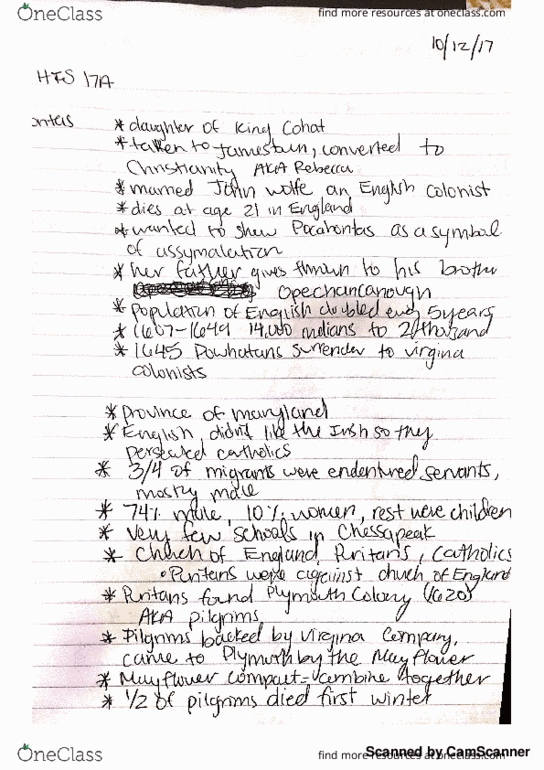 OneClass
find more resources at oneclass.com
10/12/17
HIS 17A
ontas
* daughter of King Cohat
* taken to Jamestown, converted to
Christianity AKA Rebecca
* married John wolfe an English colonist
* dies at age 21 in England
* wanted to show Pocahontas as a symbol
of assymalation
* her father gives thrown to his brother
Opechancanough
* Population of English doubled every 5 years
* 1607-1649 14,000 indians to 2 thousand
* 1645 Powhatans surrender to virgina
colonists
* Province of maryland
* English didn't like the Irish so they
persecuted catholics
* 3/4 of migrants were endentured servants,
mostly male
* 74% male, 10% women, rest were children
* very few schools in Chessapeak
* Church of England, Puritans, Catholics
• Puritans were against church of England
* Puritans found Plymouth Colony (1620)
AKA pilgrims
* Pilgrims backed by virginia Company,
came to Plymouth by the Mayflower
* Mayflower compact - combine together
* 1/2 of pilgrims died first winter
OneClass
find more resources at oneclass.com
Scanned by CamScanner